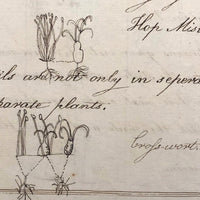 Hop Mis
ils are not only in separa
parate plants.
Cross-wort.